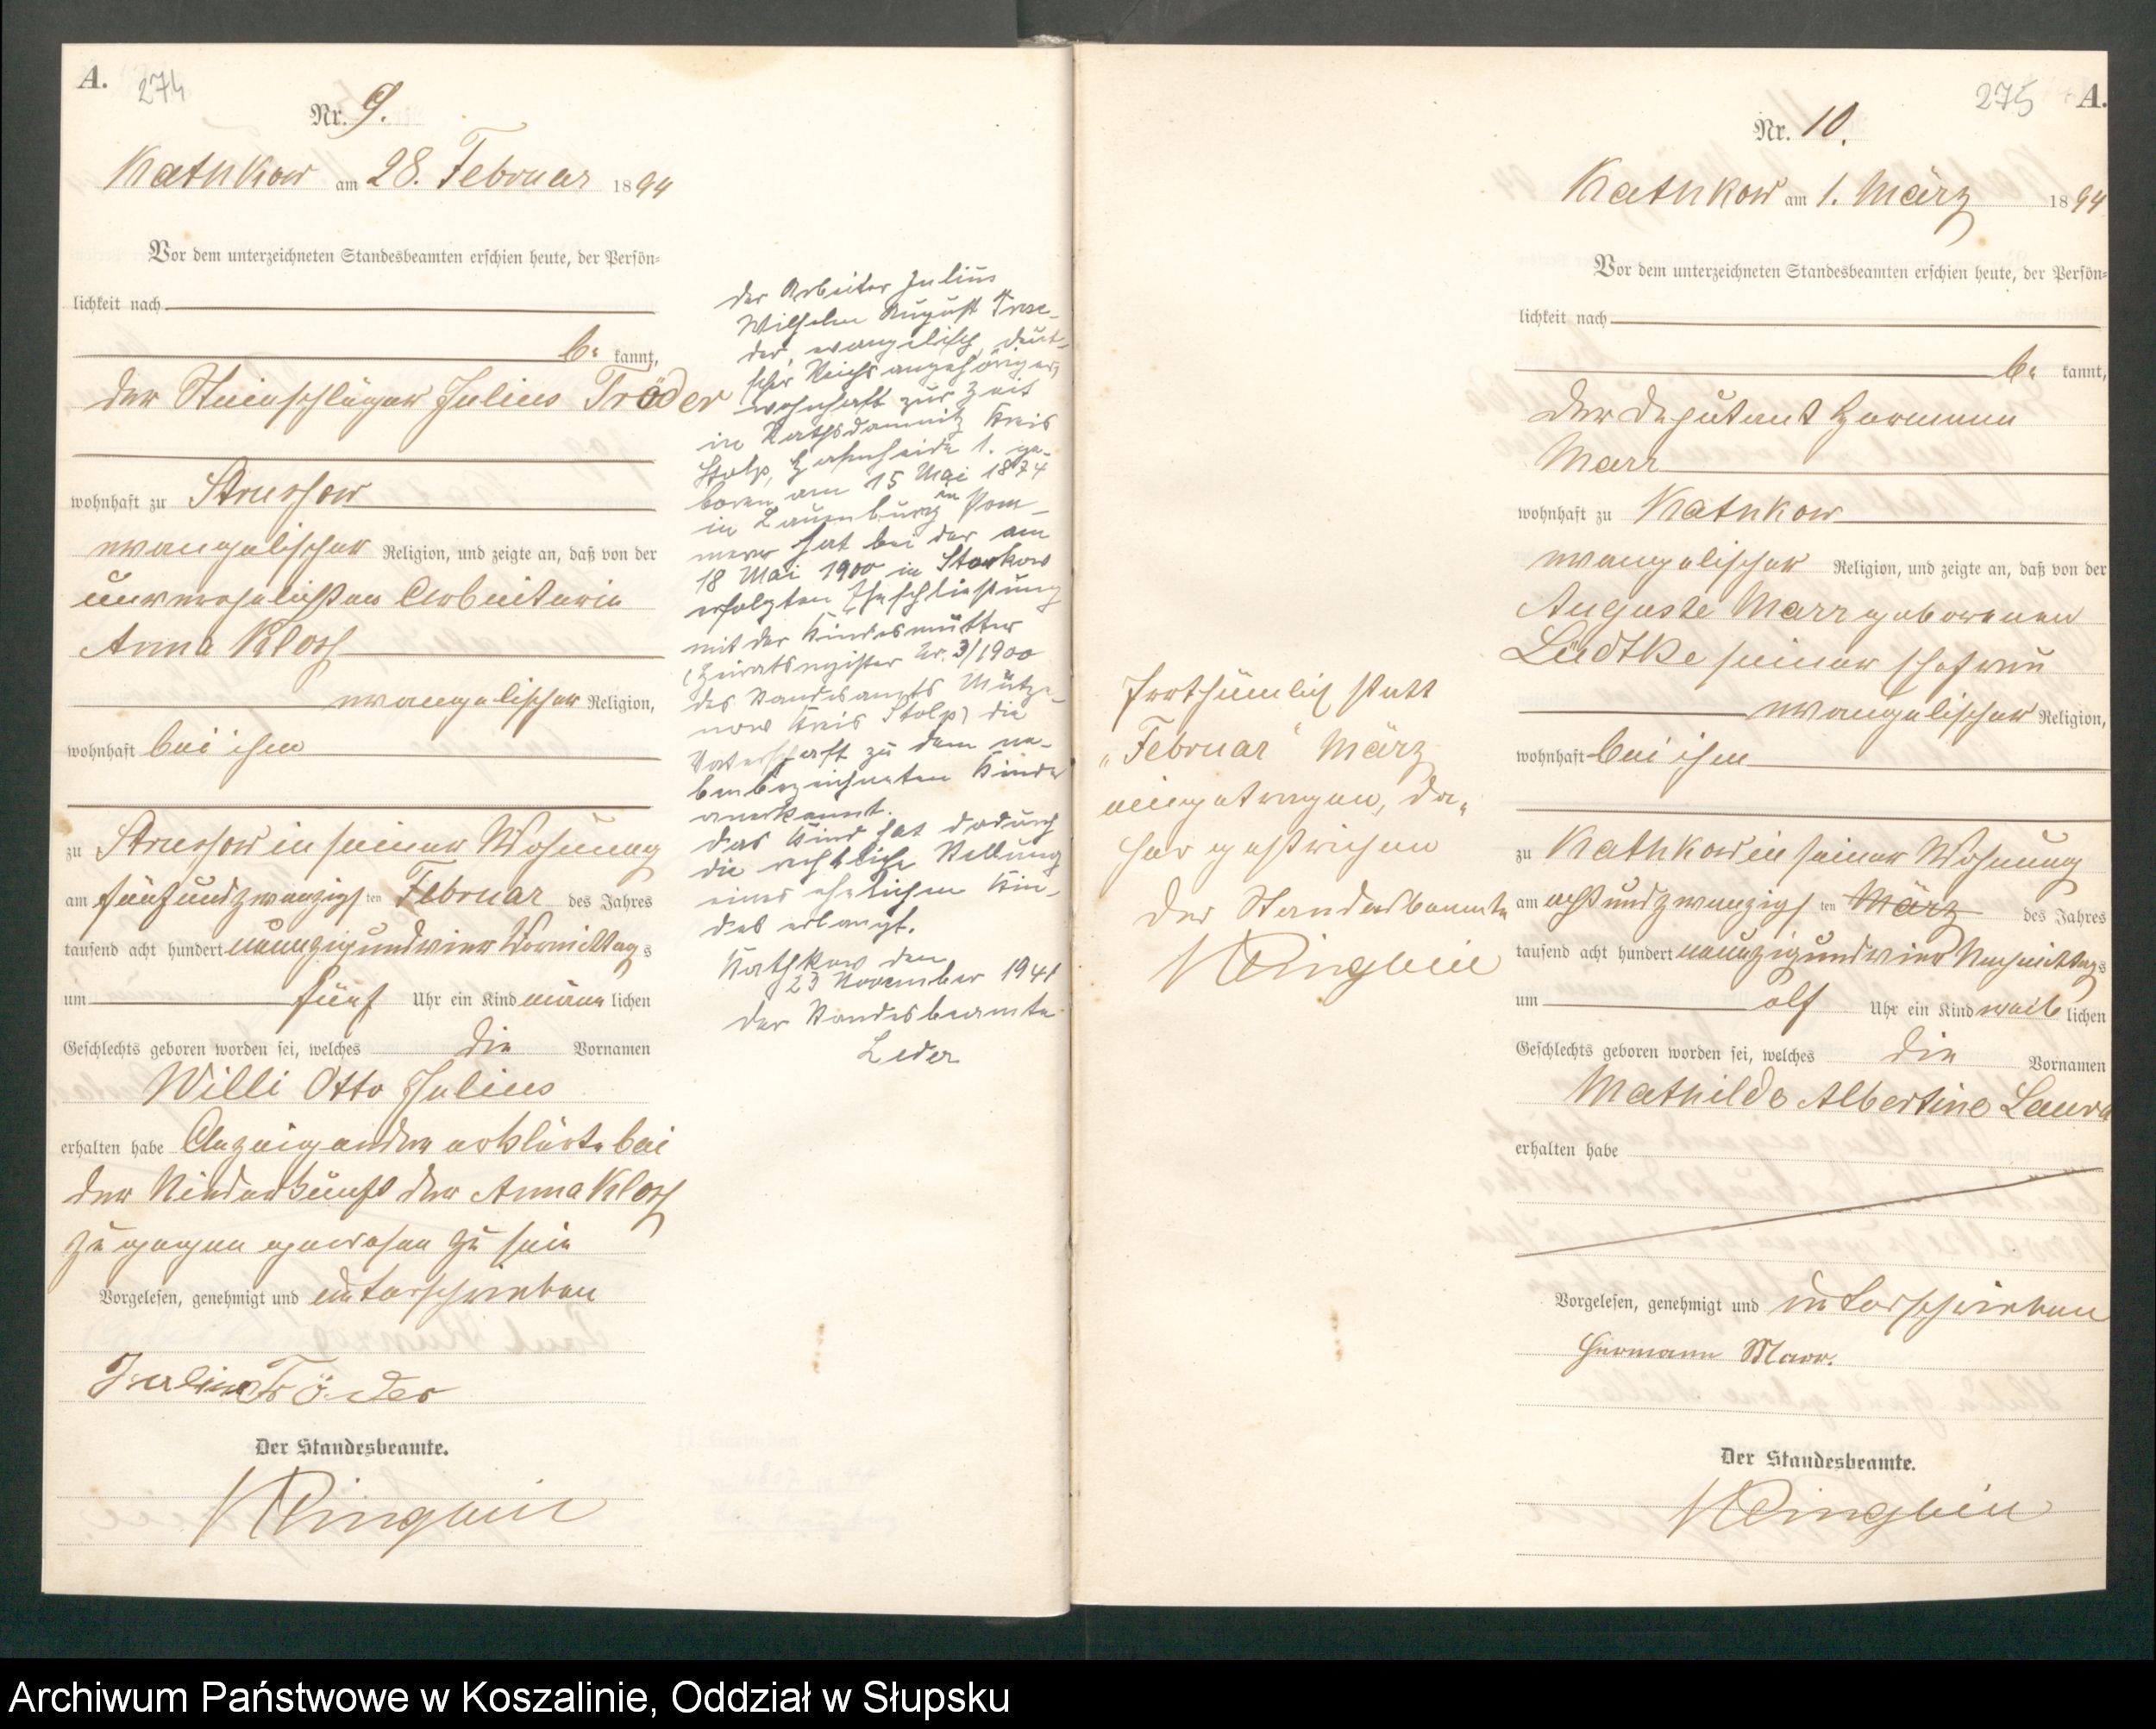 A.
274
Nr. 9.
Kathkow am 28. Februar 1894
Vor dem unterzeichneten Standesbeamten erschien heute, der Persön-
lichkeit nach
be kannt,
der Steinschläger Julius Tröder
wohnhaft zu Strussow
evangelischer Religion, und zeigte an, daß von der
unverehelichten Arbeiterin
Anna Klosf
evangelischer Religion,
wohnhaft bei ihm
zu Strussow in seiner Wohnung
am fünfundzwanzigs ten Februar des Jahres
tausend acht hundert neunzigundvier Vormittag s
um fünf Uhr ein Kind männ lichen
Geschlechts geboren worden sei, welches die Vornamen
Willi Otto Julius
erhalten habe Anzeigender erklärte bei
der Niederkunft der Anna Klosf
zugegen gewesen zu sein
Vorgelesen, genehmigt und unterschrieben
Julius Tröder
Der Standesbeamte.
Der Arbeiter Julius
Wilhelm August Troe-
der, evangelisch, deut-
scher Reichsangehöriger,
wohnhaft zur Zeit
in Rathsdamnitz Kreis
Stolp, 1. ge-
boren am 15 Mai 1874
in Lauenburg in Pom-
mern hat bei der am
18 Mai 1900 in Starkow
erfolgten Eheschließung
mit der Kindesmutter
(Heiratsregister Nr. 3/1900
des Standesamts Mütze-
now Kreis Stolp) die
Vaterschaft zu dem ne-
benbezeichneten Kinde
anerkannt.
Das Kind hat dadurch
die rechtliche Stellung
eines ehelichen Kin-
des erlangt.
Kathkow den
23 November 1941
Der Standesbeamte
Leder
275
A.
Nr. 10.
Kathkow am 1. März 1894
Vor dem unterzeichneten Standesbeamten erschien heute, der Persön-
lichkeit nach
be kannt,
der Deputant Hermann
Marr
wohnhaft zu Kathkow
evangelischer Religion, und zeigte an, daß von der
Auguste Marr geborenen
Lüdtke seiner Ehefrau
evangelischer Religion,
wohnhaft bei ihm
zu Kathkow in seiner Wohnung
am achtundzwanzigs ten März des Jahres
tausend acht hundert neunzigundvier Nachmittag s
um elf Uhr ein Kind weib lichen
Geschlechts geboren worden sei, welches die Vornamen
Mathilde Albertine Laura
erhalten habe
Vorgelesen, genehmigt und unterschrieben
Hermann Marr.
Der Standesbeamte.
Irrthümlich statt
„Februar“ März
eingetragen, da-
her gestrichen
Der Standesbeamte
Archiwum Państwowe w Koszalinie, Oddział w Słupsku